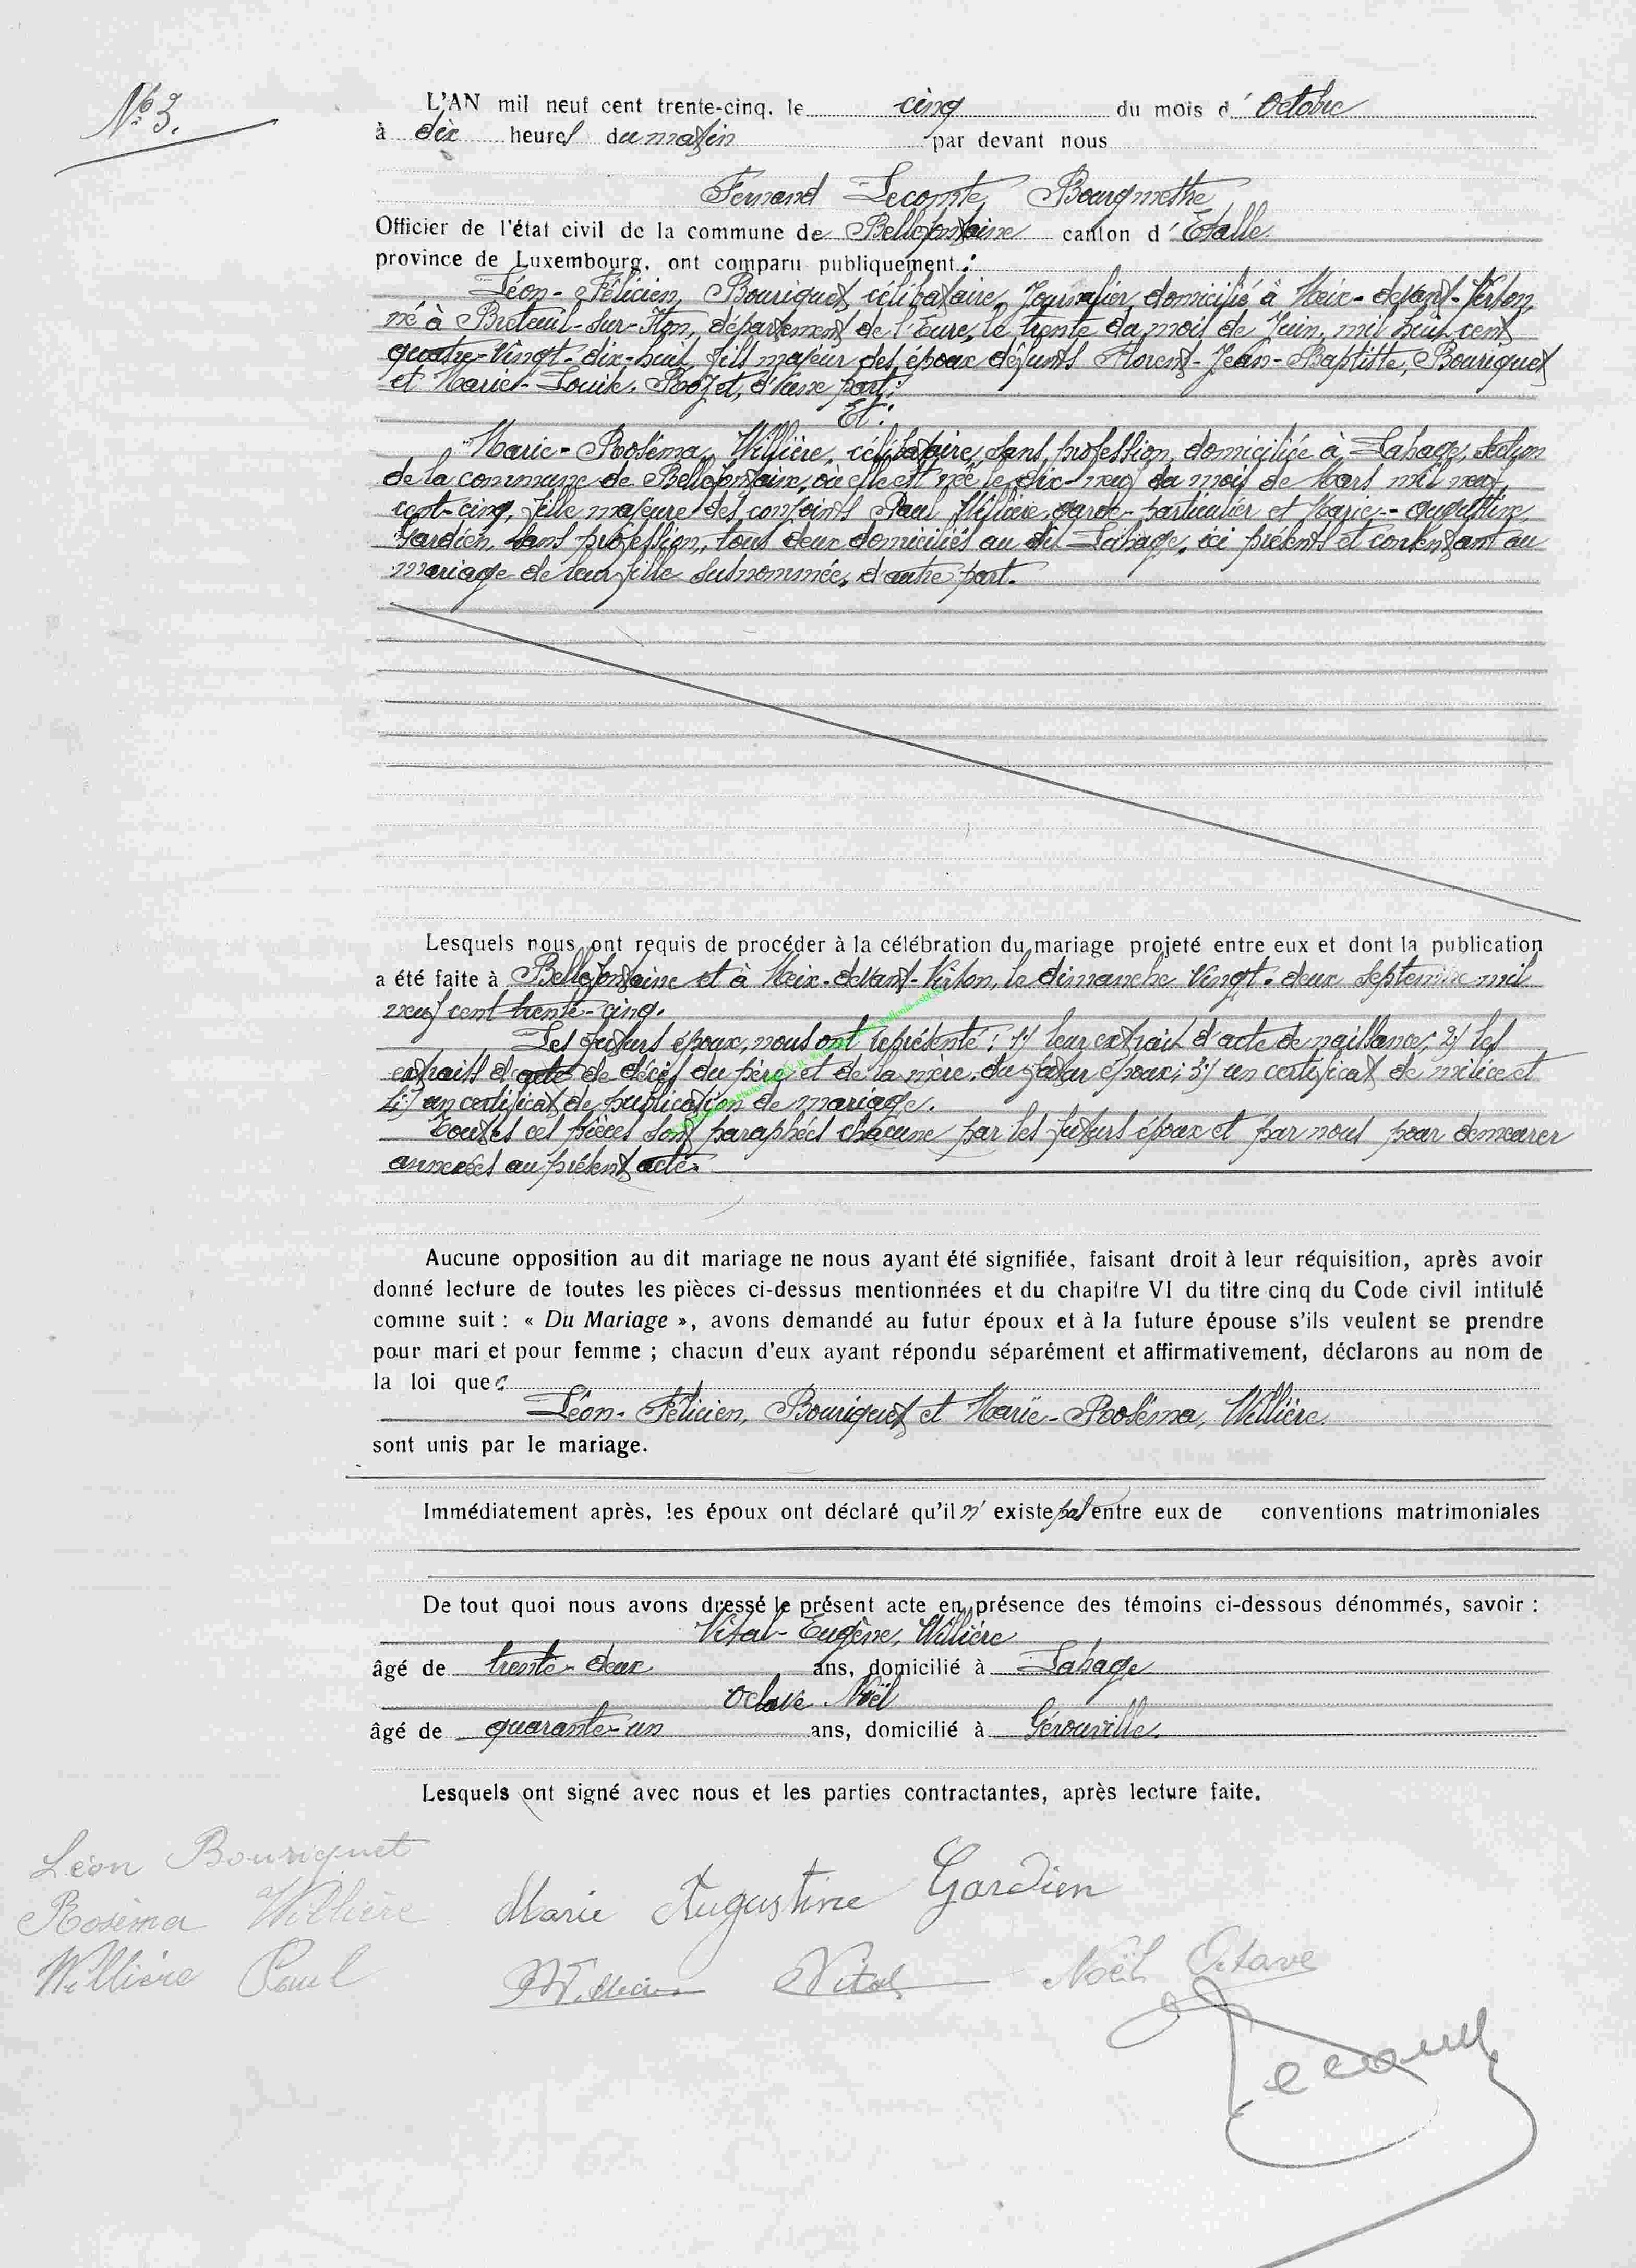 N° 3.
L'AN mil neuf cent trente-cinq, le cinq du mois d' Octobre
à dix heures du matin par devant nous
Fernand Lecomte, Bourgmestre
Officier de l'état civil de la commune de Bellefontaine canton d' Etalle
province de Luxembourg, ont comparu publiquement :
Léon-Félicien, Bouriquet, célibataire, Journalier, domicilié à Meix-devant-Virton,
né à Breteuil-sur-Iton, département de l'Eure, le trente du mois de Juin, mil huit cent
quatre-vingt-dix-huit, fils majeur des époux défunts Florent-Jean-Baptiste, Bouriquet
et Marie-Louise, d'une part;
Et:
Marie-Roséma, Willière, célibataire, sans profession, domiciliée à Lahage, section
de la commune de Bellefontaine, où elle est née le dix-neuf du mois de Mars mil neuf
cent-cinq, fille majeure des conjoints Paul Willière, garde-particulier et Marie-Augustine,
Gardien, sans profession, tous deux domiciliés au dit Lahage, ici présents et consentant au
mariage de leur fille susnommée, d'autre part.
Lesquels nous ont requis de procéder à la célébration du mariage projeté entre eux et dont la publication
a été faite à Bellefontaine et à Meix-devant-Virton, le dimanche vingt-deux septembre mil
neuf cent trente-cinq.
Les futurs époux, nous ont représenté : 1/ leur extrait d'acte de naissance; 2/ les
extraits d'acte de décès du père et de la mère du futur époux; 3/ un certificat de milice et
4/ un certificat de publication de mariage.
Toutes ces pièces sont paraphées chacune par les futurs époux et par nous pour demeurer
annexées au présent acte.
Aucune opposition au dit mariage ne nous ayant été signifiée, faisant droit à leur réquisition, après avoir
donné lecture de toutes les pièces ci-dessus mentionnées et du chapitre VI du titre cinq du Code civil intitulé
comme suit : « Du Mariage », avons demandé au futur époux et à la future épouse s'ils veulent se prendre
pour mari et pour femme ; chacun d'eux ayant répondu séparément et affirmativement, déclarons au nom de
la loi que :
Léon-Félicien, Bouriquet et Marie-Roséma, Willière
sont unis par le mariage.
Immédiatement après, les époux ont déclaré qu'il n' existe pas entre eux de conventions matrimoniales
De tout quoi nous avons dressé le présent acte en présence des témoins ci-dessous dénommés, savoir :
Vital-Eugène, Willière
âgé de trente-deux ans, domicilié à Lahage
Octave Noël
âgé de quarante-un ans, domicilié à Gérouville.
Lesquels ont signé avec nous et les parties contractantes, après lecture faite.
Léon Bouriquet
Roséma Willière Marie Augustine Gardien
Willière Paul Willière Vital Noël Octave
Lecomte